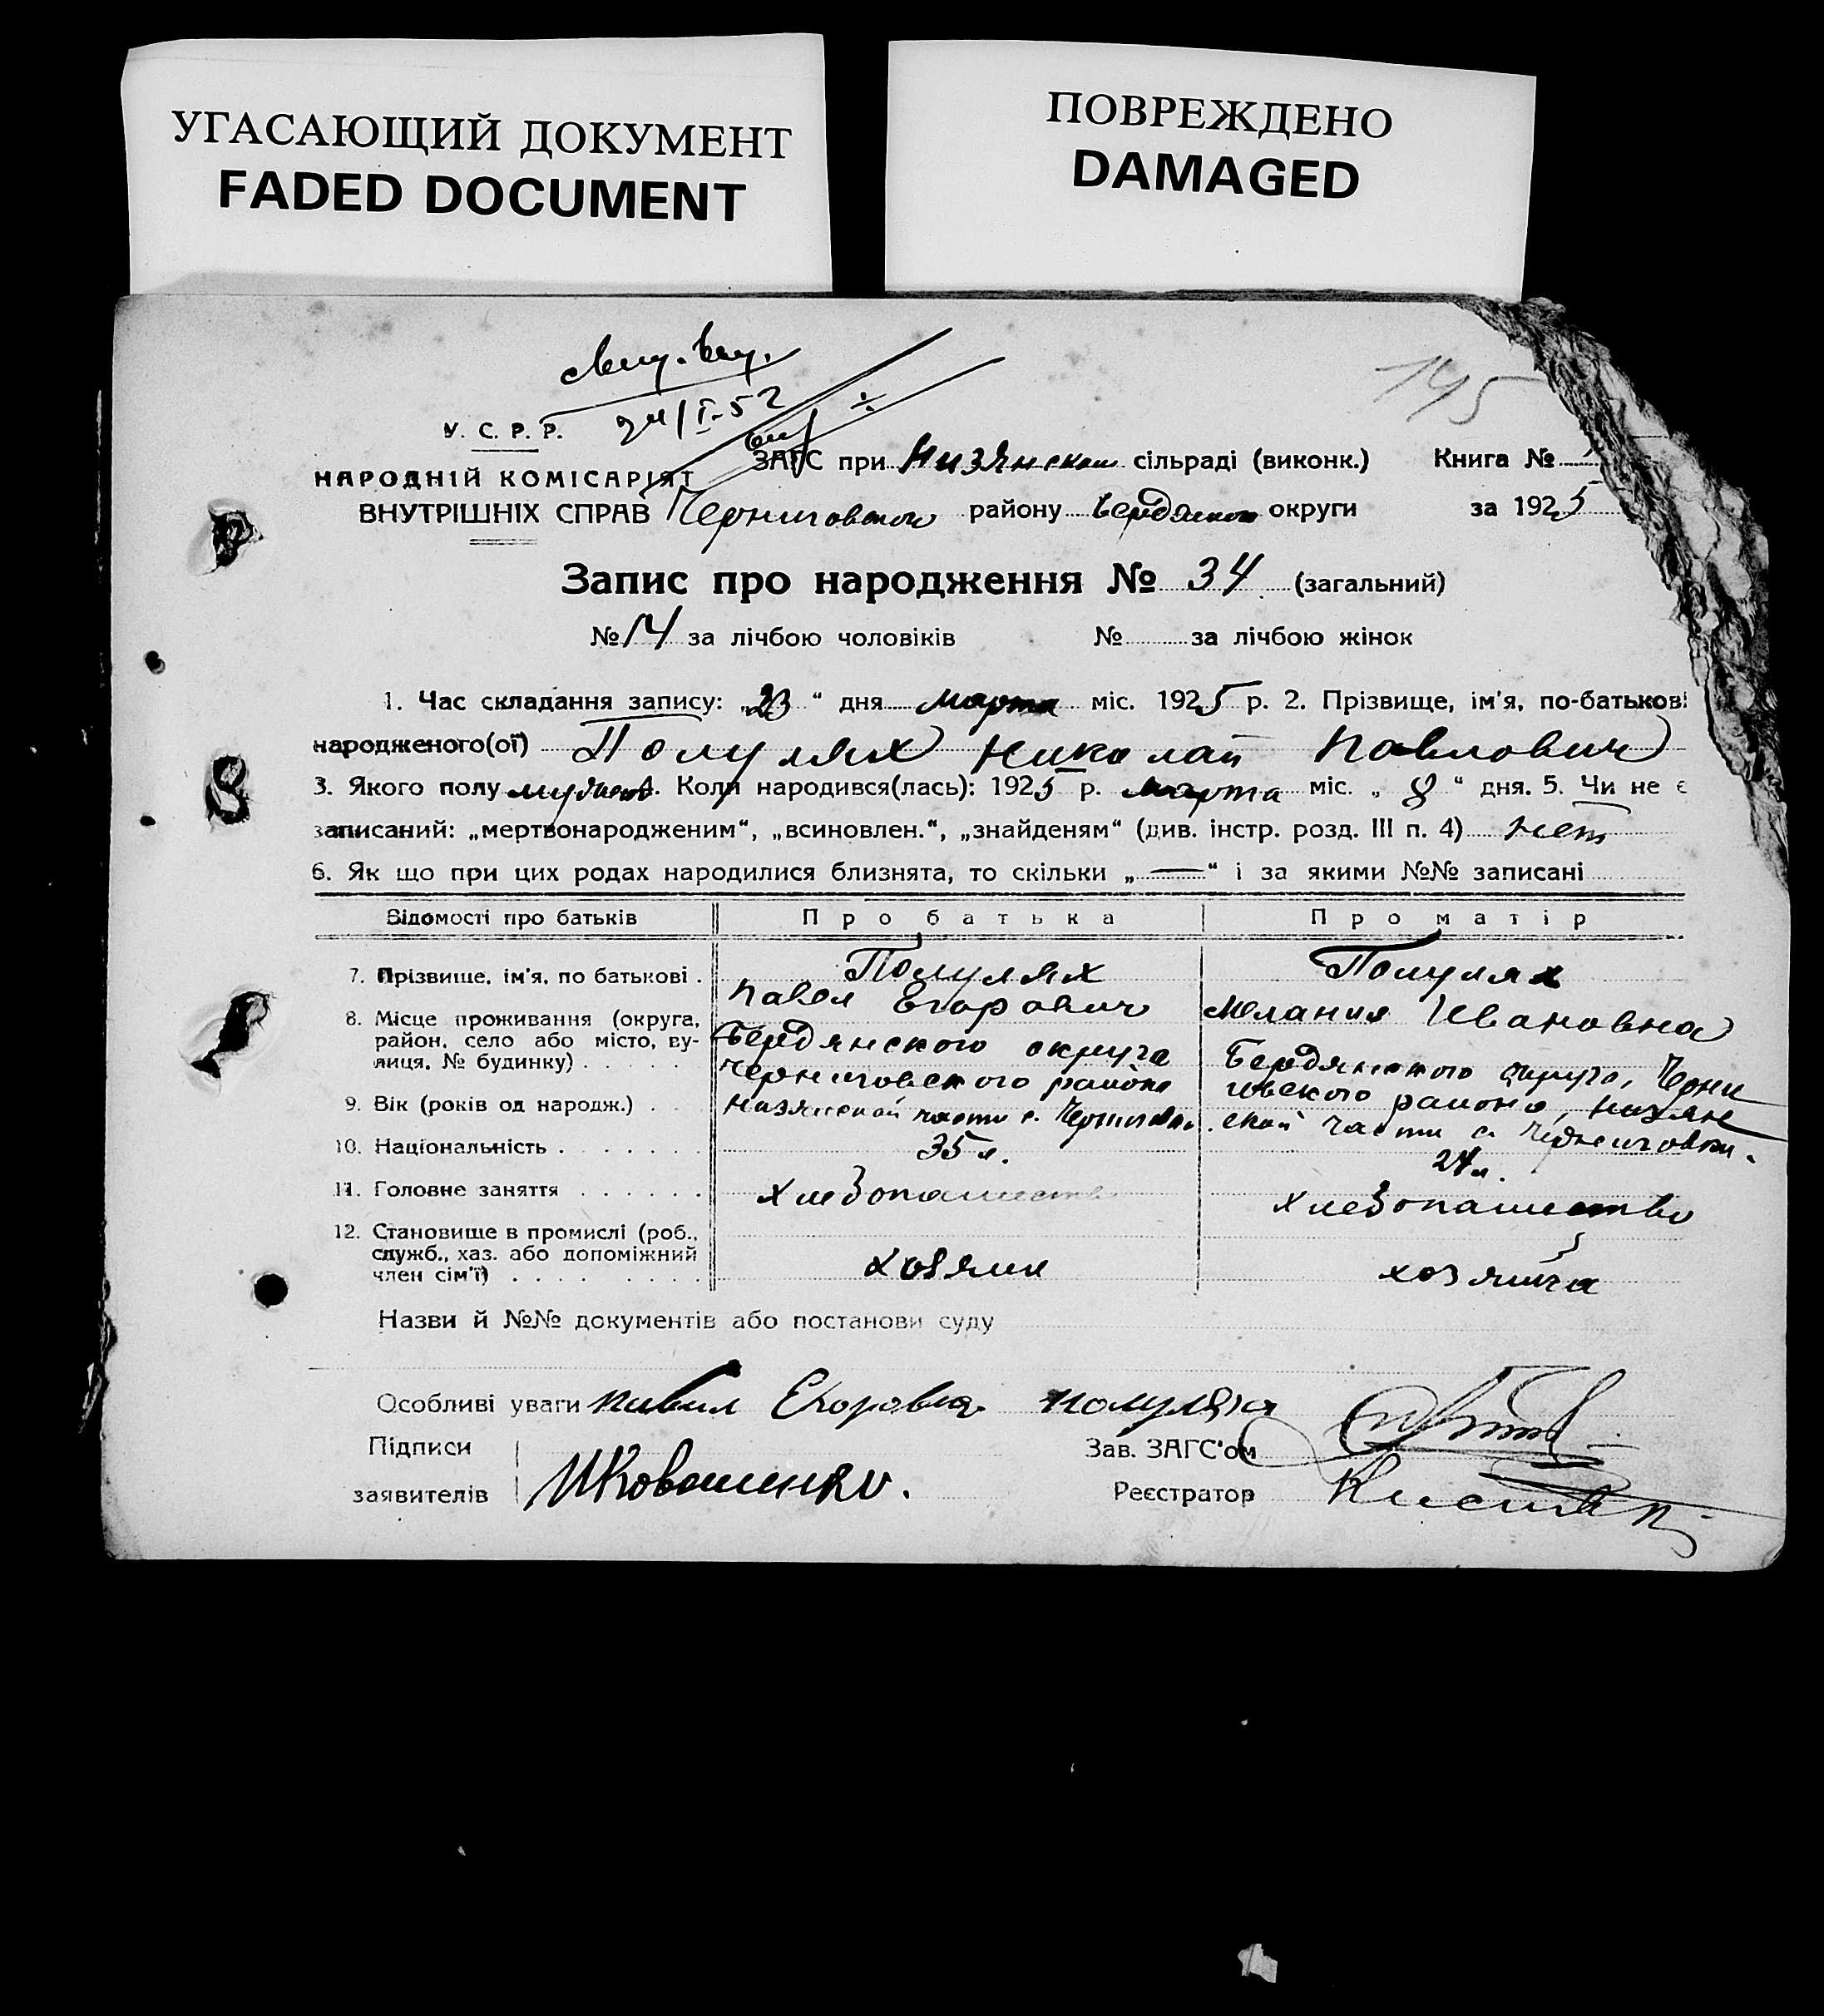 УГАСАЮЩИЙ ДОКУМЕНТ
FADED DOCUMENT
ПОВРЕЖДЕНО
DAMAGED
145
24/I-52
У. С. Р. Р.
НАРОДНІЙ КОМІСАРІЯТ
ВНУТРІШНІХ СПРАВ
ЗАГС при Низянском сільраді (виконк.) Книга №
Черниговского району Бердянской округи за 1925
Запис про народження № 34 (загальний)
№ 14 за лічбою чоловіків № за лічбою жінок
1. Час складання запису: „23“ дня марта міс. 1925 р. 2. Прізвище, ім'я, по-батькові
народженого(ої) Полулях Николай Павлович
3. Якого полу мужск 4. Коли народився(лась): 1925 р. марта міс. „8“ дня. 5. Чи не є
записаний: „мертвонародженим“, „всиновлен.“, „знайденям“ (див. інстр. розд. III п. 4) нет
6. Як що при цих родах народилися близнята, то скільки „—“ і за якими №№ записані
Відомості про батьків Про батька Про матір
7. Прізвище, ім'я, по батькові . Полулях Полулях
Павел Егорович Мелания Ивановна
8. Місце проживання (округа,
район, село або місто, ву-
лиця, № будинку) . . . . .
Бердянского округа
Черниговского района
Низянской части с. Черниговки
Бердянского округа, Черни
говского района, Низян
ской части с. Черниговки.
9. Вік (років од народж.) . .
35 л. 24 л.
10. Національність . . . . . . .
11. Головне заняття . . . . . . хлебопашество хлебопашество
12. Становище в промислі (роб.,
служб., хаз. або допоміжний
член сім'ї) . . . . . . . . хозяин хозяйка
Назви й №№ документів або постанови суду
Особливі уваги Павел Егорович Полулях
Підписи Зав. ЗАГС'ом
заявителів И Коваленко. Реєстратор